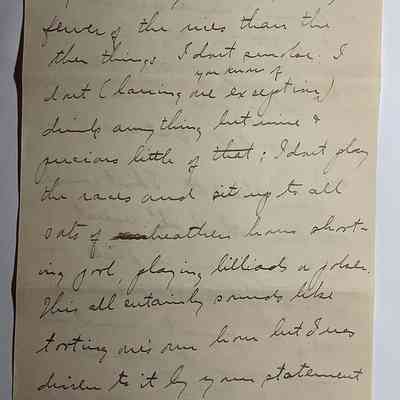 fewer of the vices than the
other things. I dont smoke. I
you know of
dont (barring one exception)
drink anything but wine &
precious little of that; I dont play
the races and sit up to all
sorts of heathen hours shoot-
ing pool, playing billiards or poker.
This all certainly sounds like
tooting one's own horn but I was
driven to it by your statement